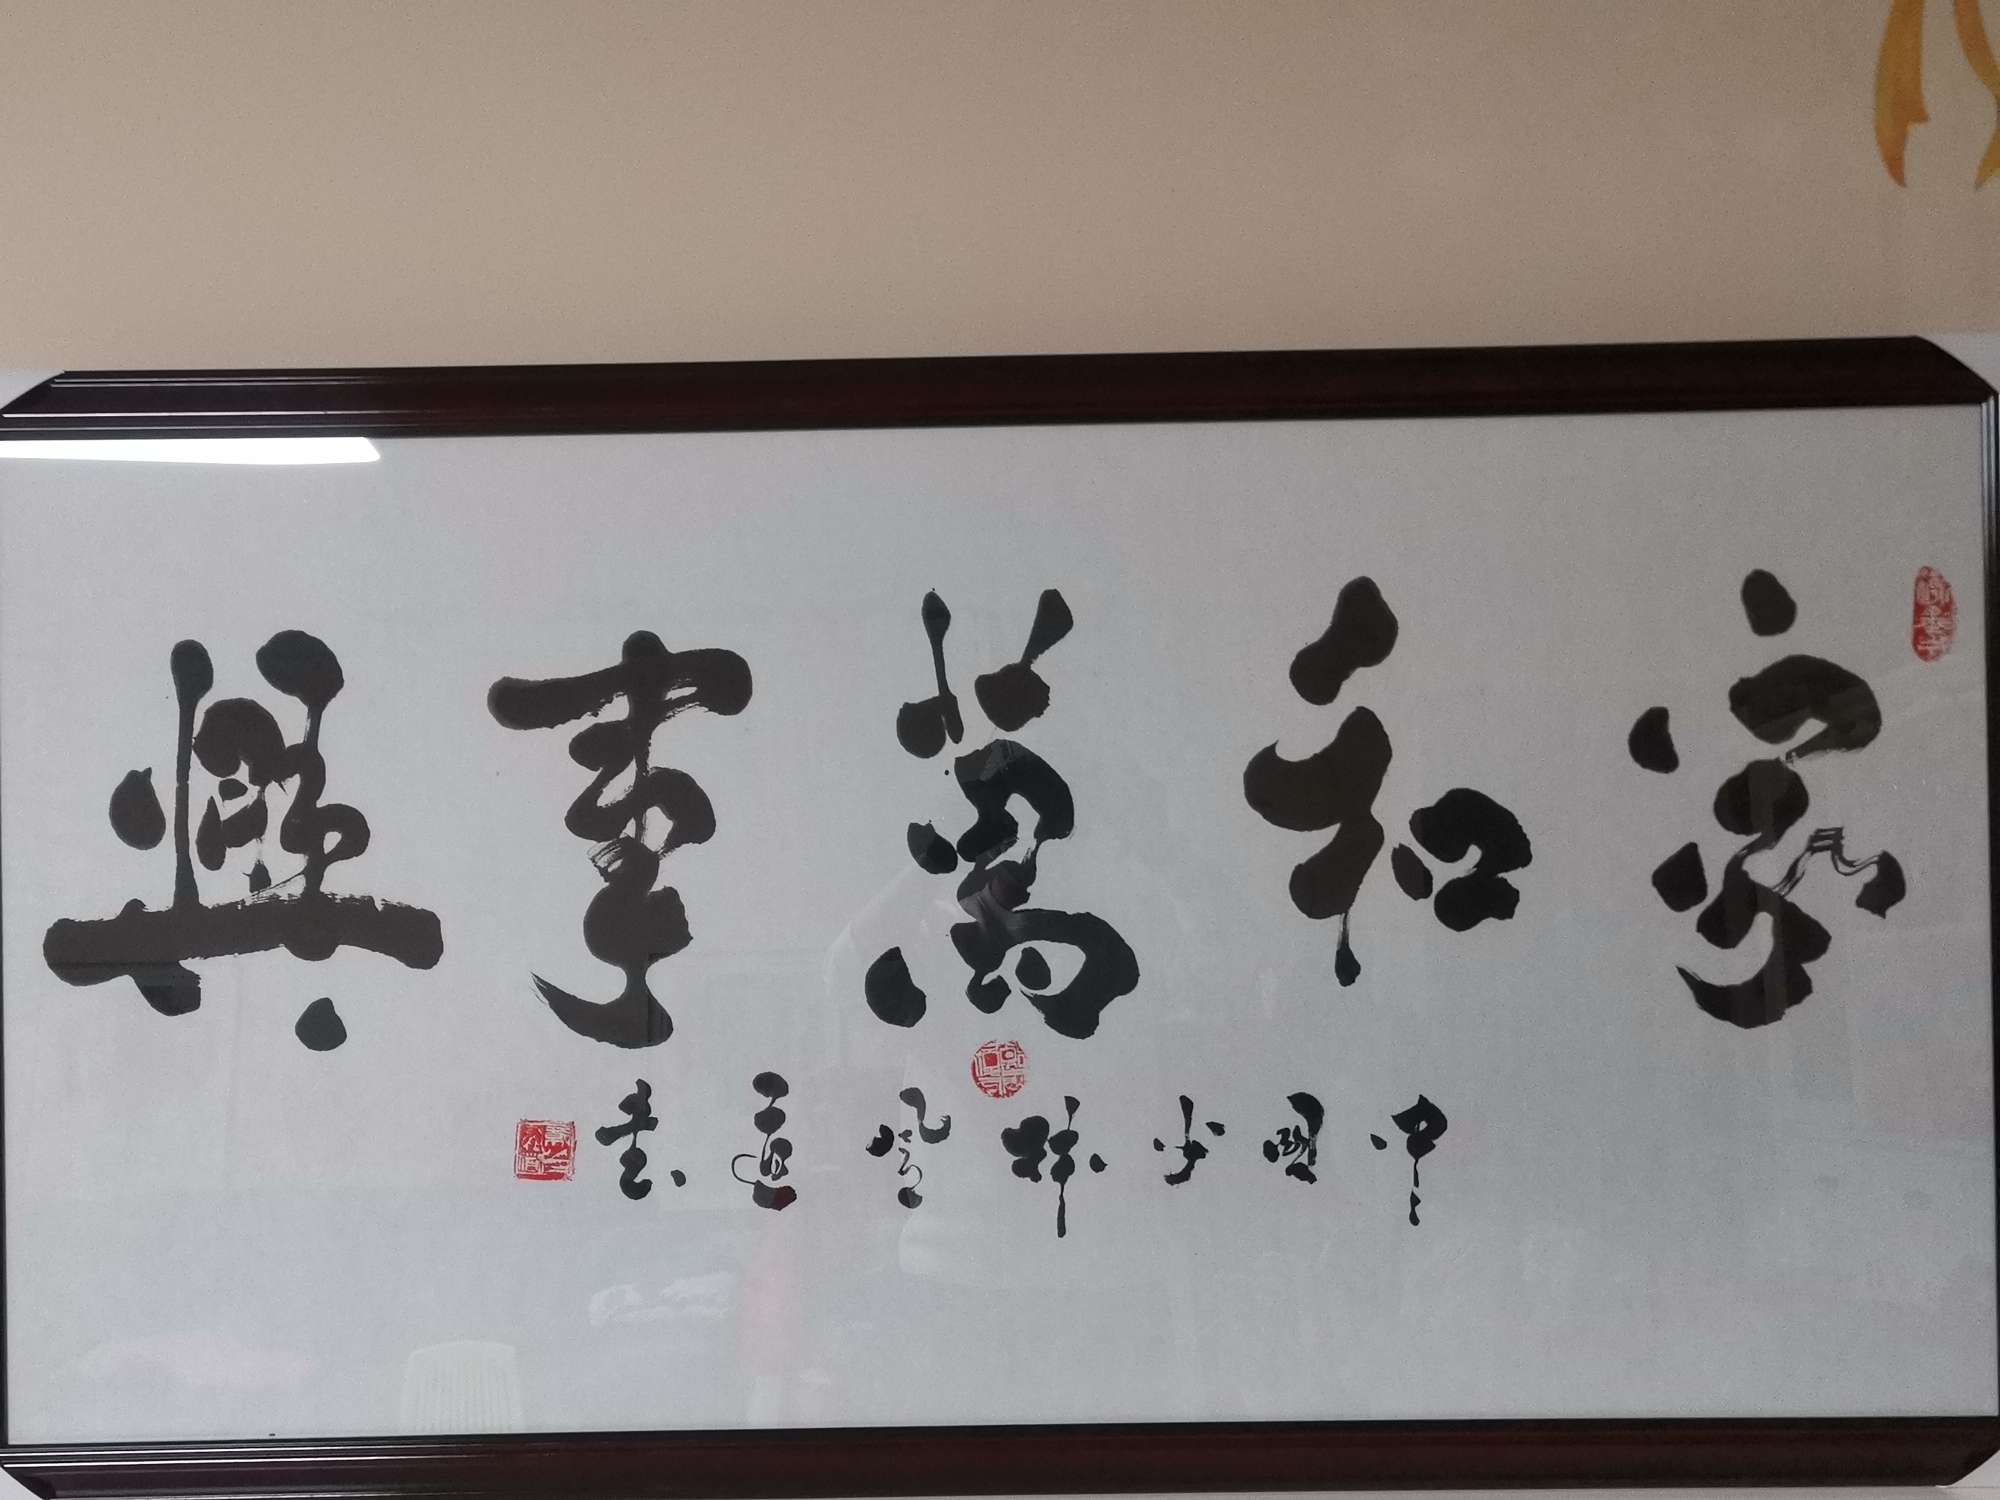 家和萬事興
中國少林 道書